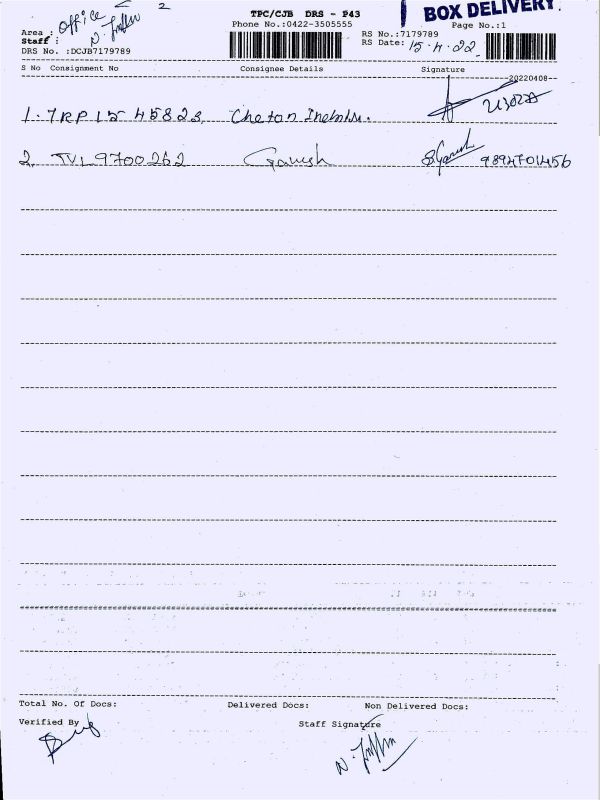 TPC/CJB DRS - P43
BOX DELIVERY.
Phone No.:0422-3505555
Page No.:1
Area : Office
2
Staff :
RS No.:7179789
RS Date: 15.4.22
DRS No. :DCJB7179789
S No Consignment No Consignee Details Signature
20220408
1. TRP 15 45823 Chetan
2. TVL9700262 Ganesh S.Ganesh 9894701456
Total No. Of Docs: Delivered Docs: Non Delivered Docs:
Verified By Staff Signature